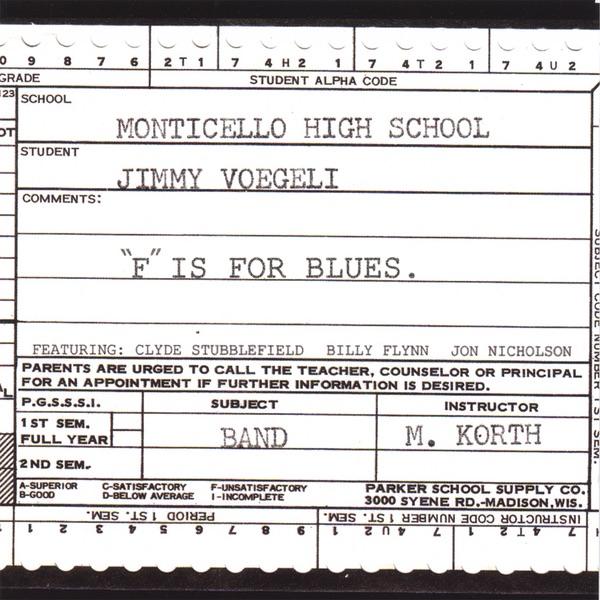 0 9 8 7 6 2 T 1 7 4 H 2 1 7 4 T 2 1 7 4 U 2
GRADE STUDENT ALPHA CODE
123
SCHOOL
MONTICELLO HIGH SCHOOL
STUDENT
JIMMY VOEGELI
COMMENTS:
"F" IS FOR BLUES.
FEATURING: CLYDE STUBBLEFIELD BILLY FLYNN JON NICHOLSON
PARENTS ARE URGED TO CALL THE TEACHER, COUNSELOR OR PRINCIPAL
FOR AN APPOINTMENT IF FURTHER INFORMATION IS DESIRED.
P.G.S.S.S.I. SUBJECT INSTRUCTOR
1ST SEM.
FULL YEAR BAND M. KORTH
2ND SEM.
A-SUPERIOR C-SATISFACTORY F-UNSATISFACTORY
B-GOOD D-BELOW AVERAGE I-INCOMPLETE
PARKER SCHOOL SUPPLY CO.
3000 SYENE RD.-MADISON,WIS.
INSTRUCTOR CODE NUMBER 1ST. SEM. PERIOD 1ST. SEM.
7 4 T 2 1 7 4 U 2 1 9 8 7 6 5 4 3 2 1
SUBJECT CODE NUMBER 1ST SEM.